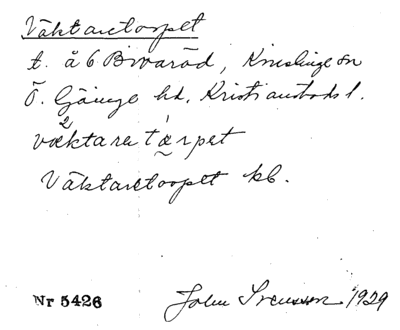 Väktaretorpet
t. å 6 Bivaröd, Knislinge sn
Ö. Göinge hd. Kristianstads l.
væktaretærpet
Väktaretorpet kb.
Nr 5426 John Svensson 1929